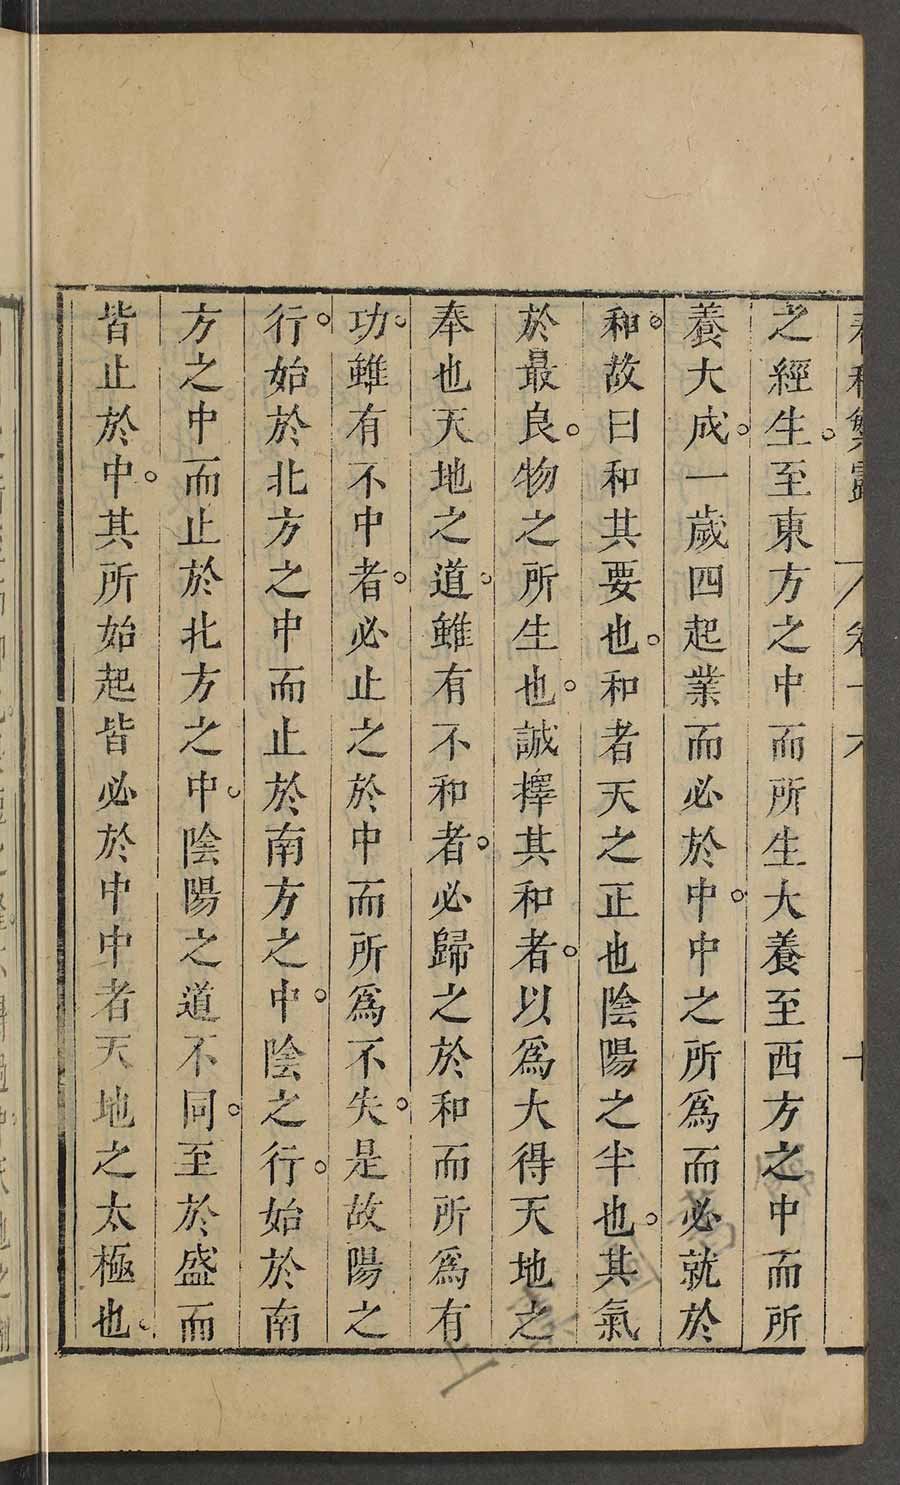 春秋繁露 卷十六 十
之經生。至東方之中而所生大養至西方之中而所
養大成。一歲四起業而必於中。中之所爲而必就於
和。故曰和其要也。和者天之正也陰陽之半也。其氣
於最良。物之所生也。誠擇其和者。以爲大得天地之
奉也天地之道。雖有不和者。必歸之於和而所爲有
功。雖有不中者。必止之於中而所爲不失。是故陽之
行。始於北方之中而止於南方之中。陰之行。始於南
方之中而止於北方之中。陰陽之道不同。至於盛而
皆止於中。其所始起皆必於中中者天地之太極也。